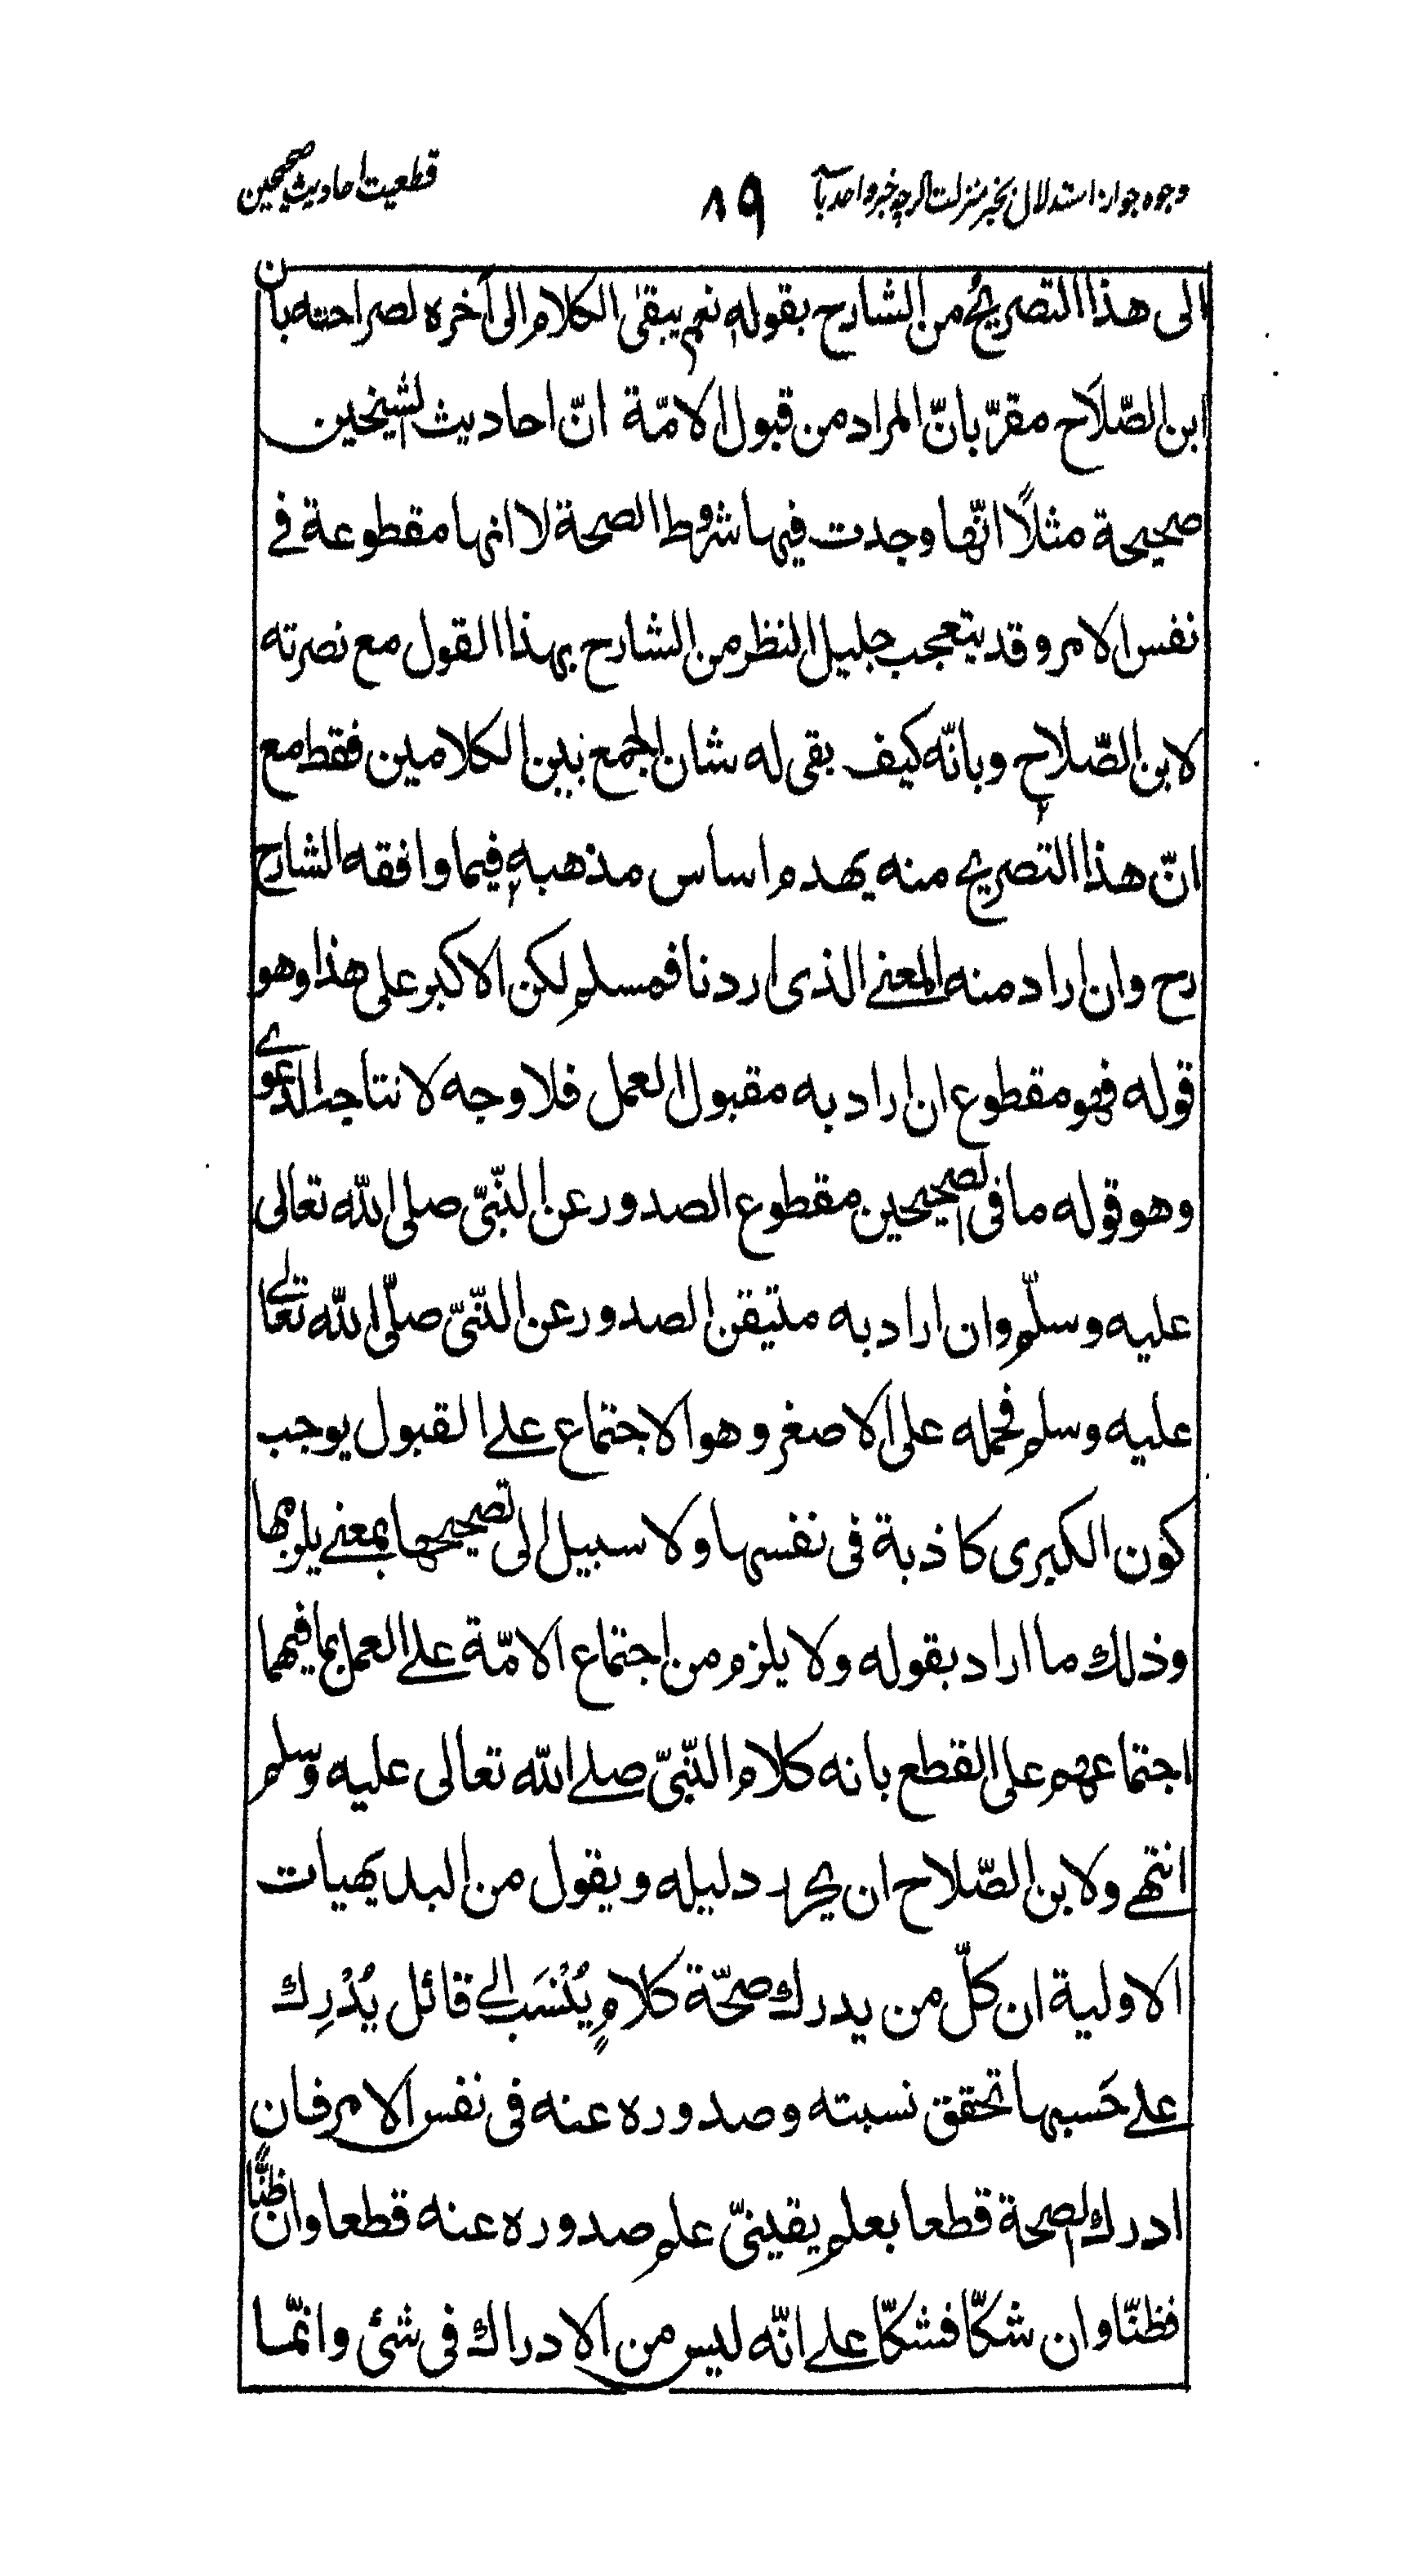 وجوه جواز استدلال بخبر منزلت اگرچه خبر واحد باشد
۸۹
قطعیت احادیث صحیحین
الى هذا التصريح من الشارح بقوله نعم يبقى الكلام الى أخره لصراحته بان
ابن الصّلاح مقرّ بانّ المراد من قبول الامّة انّ احاديث الشيخين
صحيحة مثلاً انّها وجدت فيها شروط الصحة لا انها مقطوعة في
نفس الامر وقد يتعجب جليل النظر من الشارح بهذا القول مع نصرته
لابن الصّلاح وبانّه كيف بقى له شان الجمع بين الكلامين فقط مع
انّ هذا التصريح منه يهدم اساس مذهبه فيما وافقه الشارح
رح وان اراد منه المعنى الذى اردنا فمسلم لكن الاكبر على هذا وهو
قوله فهو مقطوع ان اراد به مقبول العمل فلا وجه لانتاجه الدعوے
وهو قوله ما فى الصحيحين مقطوع الصدور عن النّبىّ صلى الله تعالى
عليه وسلّم وان اراد به متيقن الصدور عن النّبىّ صلّى الله تعالے
عليه وسلم فحمله على الاصغر وهو الاجتماع على القبول يوجب
كون الكبرى كاذبة فى نفسها ولا سبيل الى تصحيحها بمعنى يلزمها
وذلك ما اراد بقوله ولا يلزم من اجتماع الامّة على العمل بما فيهما
اجتماعهم على القطع بانه كلام النّبىّ صلے الله تعالى عليه وسلم
انتهے ولابن الصّلاح ان يحرر دليله ويقول من البديهيات
الاولية ان كلّ من يدرك صحّة كلامٍ يُنْسَب الى قائل يُدْرِك
على حَسبها تحقق نسبته وصدوره عنه فى نفس الامر فان
ادرك الصحة قطعا بعلم يقينىّ علم صدوره عنه قطعا وان ظنًّا
فظنّا وان شكّا فشكّا على انّه ليس من الادراك فى شئ وانّما